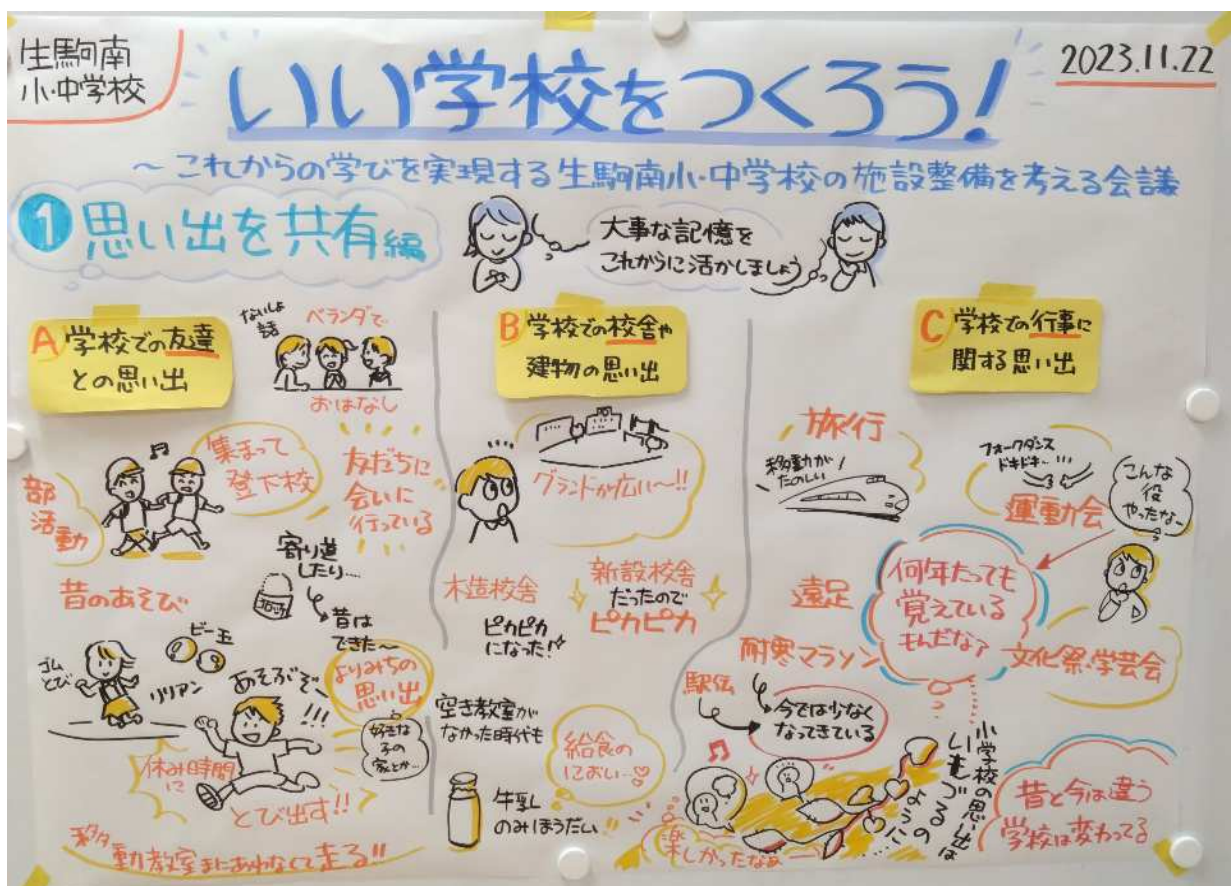 生駒南
小・中学校
いい学校をつくろう!
2023.11.22
~これからの学びを実現する生駒南小・中学校の施設整備を考える会議
1 思い出を共有編
大事な記憶を
これからに活かしましょう
A 学校での友達
との思い出
ないしょ
話
ベランダで
おはなし
集まって
登下校
部
活動
友だちに
会いに
行っている
昔のあそび
寄り道
したり….
コロッケ
昔は
できた~
よりみちの
思い出
好きな
子の
家とか…
ビー玉
ゴム
とび
リリアン
あそぶぞ
!!!
休み時間
に
とび出す!!
移動教室まにあわなくて走る!!
B 学校での校舎や
建物の思い出
グランドが広い~!!
木造校舎
新設校舎
だったので
ピカピカ
ピカピカ
になった!
空き教室が
なかった時代も
給食の
におい…♡
牛乳
のみほうだい!!
C 学校での行事に
関する思い出
旅行
移動が
たのしい
フォークダンス
ドキドキ…
運動会
こんな
役
やったな~
遠足
何年たっても
覚えている
もんだなァ
耐寒マラソン
駅伝
今では少なく
なってきている
文化祭・学芸会
小学校の思い出は
いもづるの
ように
楽しかったなぁ
昔と今は違う
学校は変わってる